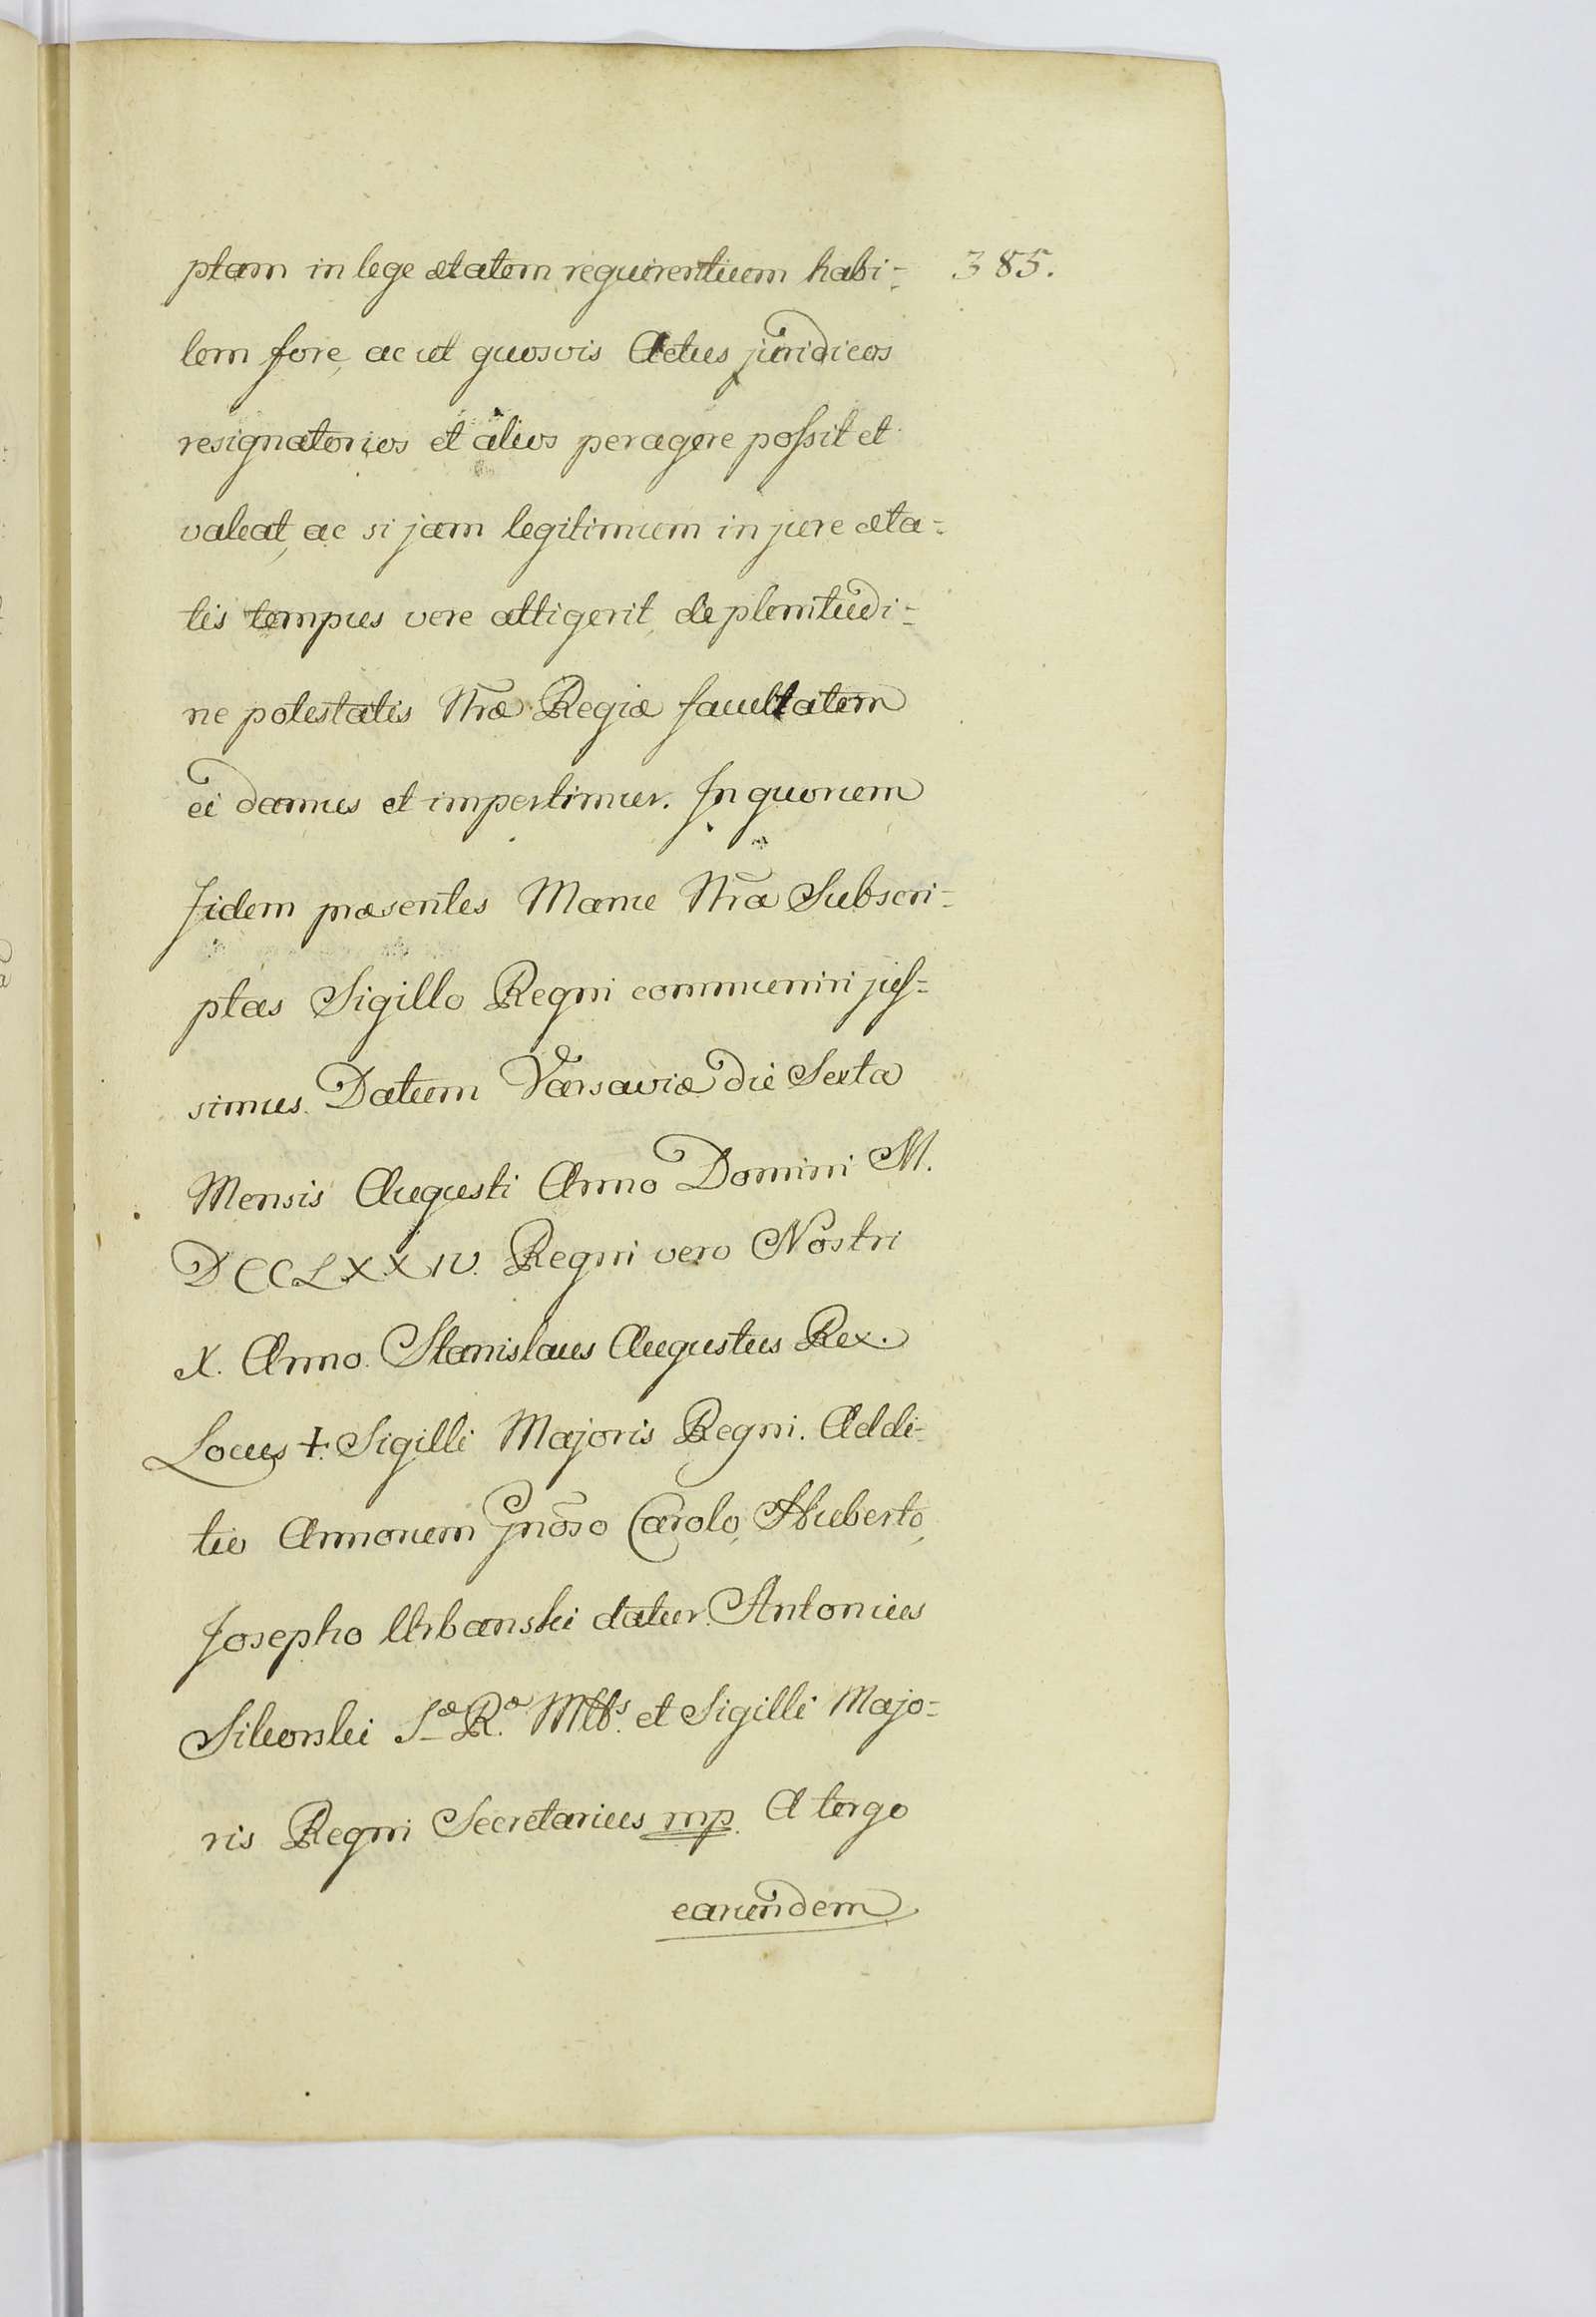 ptam in lege ætatem requirentium habi= 385.
lem fore, ac ut quosvis Actus juridicos
resignatorios et alios peragere possit et
valeat, ac si jam legitimum in jure æta=
tis tempus vere attigerit, de plenitudi=
ne potestatis Nræ Regiæ facultatem
ei damus et impertimur. In quorum
fidem præsentes Manu Nra Subscri=
ptas Sigillo Regni communiri jus=
simus. Datum Varsaviæ die Sexta
Mensis Augusti Anno Domini M.
DCCLXXIV. Regni vero Nostri
X. Anno. Stanislaus Augustus Rex.
Locus +. Sigilli Majoris Regni. Addi=
tio Annorum Gnoso Carolo, Huberto,
Josepho Urbanski datur. Antonius
Sikorski Sæ Ræ Mttis et Sigilli Majo=
ris Regni Secretarius mp. A tergo
earundem